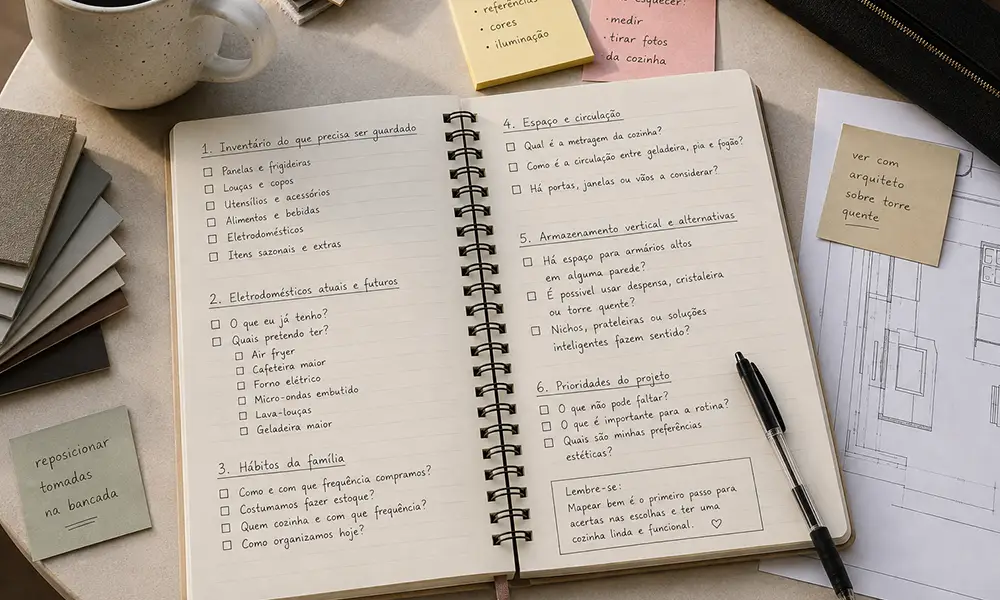 • referências
• cores
• iluminação
esquecer:
• medir
• tirar fotos
da cozinha
1. Inventário do que precisa ser guardado
Panelas e frigideiras
Louças e copos
Utensílios e acessórios
Alimentos e bebidas
Eletrodomésticos
Itens sazonais e extras
2. Eletrodomésticos atuais e futuros
O que eu já tenho?
Quais pretendo ter?
Air fryer
Cafeteira maior
Forno elétrico
Micro-ondas embutido
Lava-louças
Geladeira maior
3. Hábitos da família
Como e com que frequência compramos?
Costumamos fazer estoque?
Quem cozinha e com que frequência?
Como organizamos hoje?
4. Espaço e circulação
Qual é a metragem da cozinha?
Como é a circulação entre geladeira, pia e fogão?
Há portas, janelas ou vãos a considerar?
5. Armazenamento vertical e alternativas
Há espaço para armários altos
em alguma parede?
É possivel usar despensa, cristaleira
ou torre quente?
Nichos, prateleiras ou soluções
inteligentes fazem sentido?
6. Prioridades do projeto
O que não pode faltar?
O que é importante para a rotina?
Quais são minhas preferências
estéticas?
Lembre-se:
Mapear bem é o primeiro passo para
acertas nas escolhas e ter uma
cozinha linda e funcional. ♡
ver com
arquiteto
sobre torre
quente
reposicionar
tomadas
na bancada